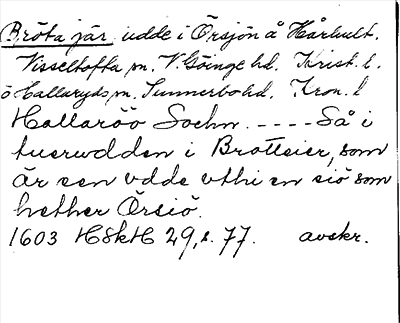 Bröta jär udde i Örsjön å Hårhult.
Visseltofta sn. V. Göinge hd. Krist. l.
ö. Hallaryds sn. Sunnerbo hd. Kron. l
Hallaröö Sochn. ---- Så i
tuerwdden i Brötteier, som
är een vdde vthi en siö som
hether Örsiö.
1603 HSkH 29, s. 77. avskr.